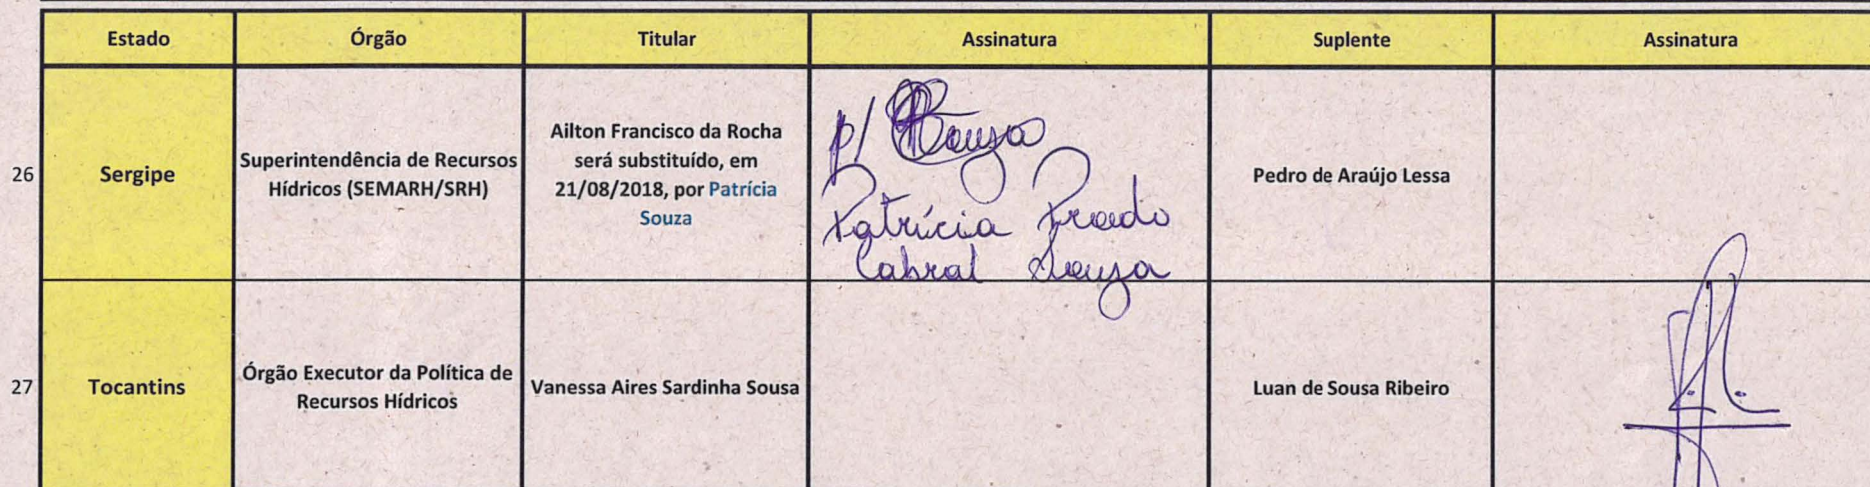 Estado Órgão Titular Assinatura Suplente Assinatura
26
Sergipe
Superintendência de Recursos
Hídricos (SEMARH/SRH)
Ailton Francisco da Rocha
será substituído, em
21/08/2018, por Patrícia
Souza
p/ Souza
Patrícia Prado
Cabral Souza
Pedro de Araújo Lessa
27
Tocantins
Órgão Executor da Política de
Recursos Hídricos
Vanessa Aires Sardinha Sousa
Luan de Sousa Ribeiro